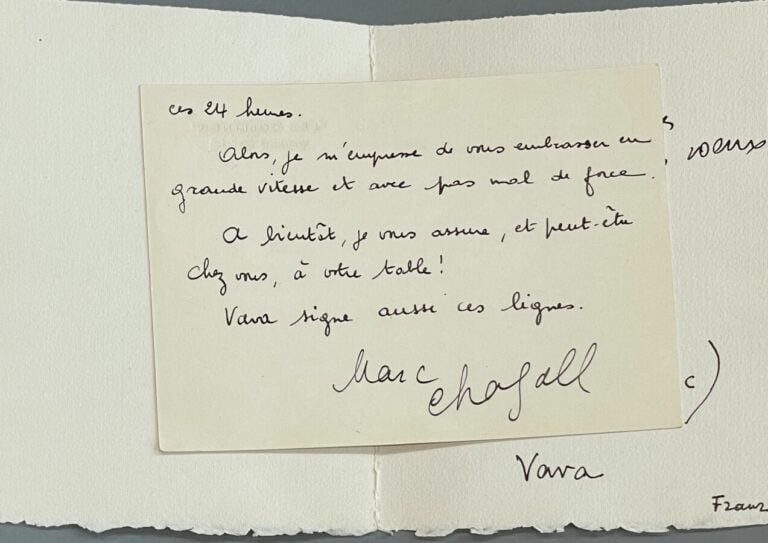 ces 24 heures.
Alors, je m'empresse de vous embrasser en
grande vitesse et avec pas mal de force.
A bientôt, je vous assure, et peut-être
chez vous, à votre table!
Vava signe aussi ces lignes.
Marc
Chagall
voeux
c)
Vava